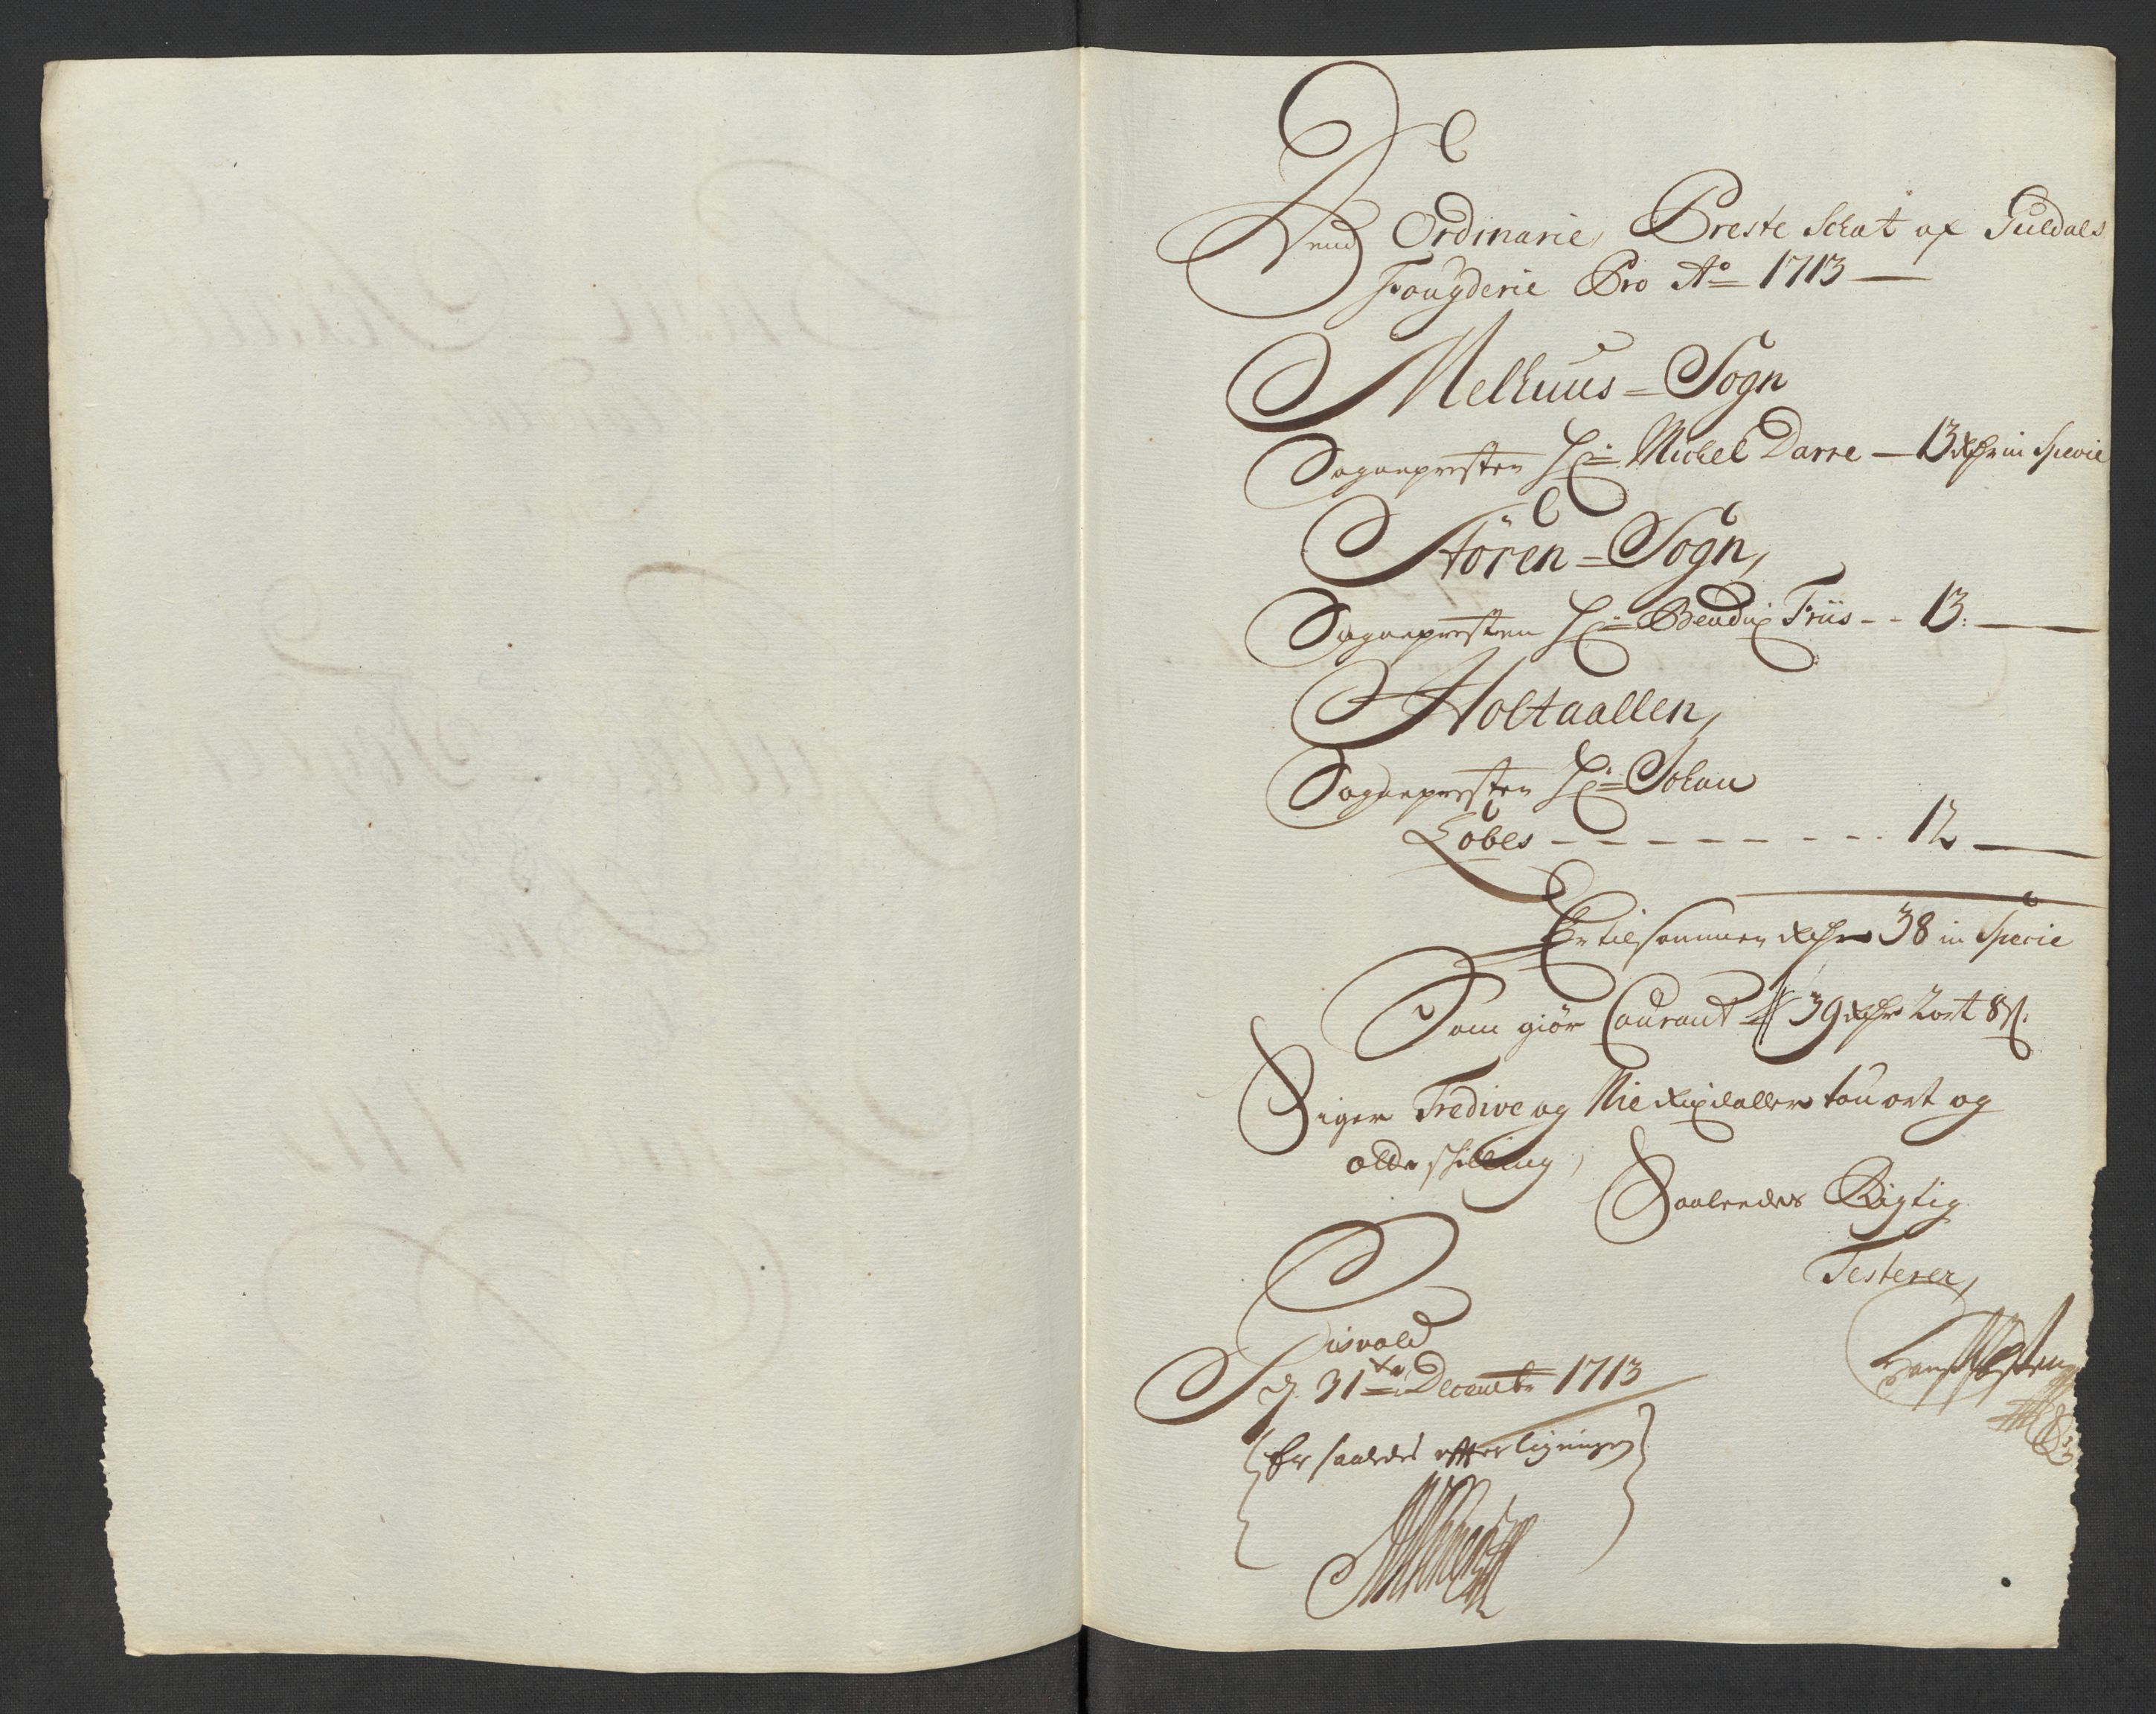 Dend Ordinarie Preste Schat af Guldals
Fougderie Pro Ao 1713
Melhuus=Sogn
Sognepresten Hr: Michel Darre — 13 Rdr in Specie
Stören=Sogn,
Sognepresten Hr: Bendix Friis - - 13:
Holtaallen,
Sognepresten Hr: Johan
Löbes - - - - - - - - 12
Er tilsammen Rdr 38 in Specie
Som giör Courant 39 Rdr 2 ort 8 s.
Siger Tredive og Nie Rixdaller tou ort og
otte skilling,
Saaledes Rigtig
Testerer,
d. 31te Decembr 1713
Er saaledes effter ligningen